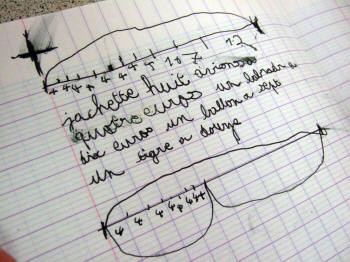 4 4 4 4 4 4 4 10 7 12
jachette huit avions
quatre euros un
dix euros un ballon a sept
un tigre a douze
4 4 4 4 4 4 4